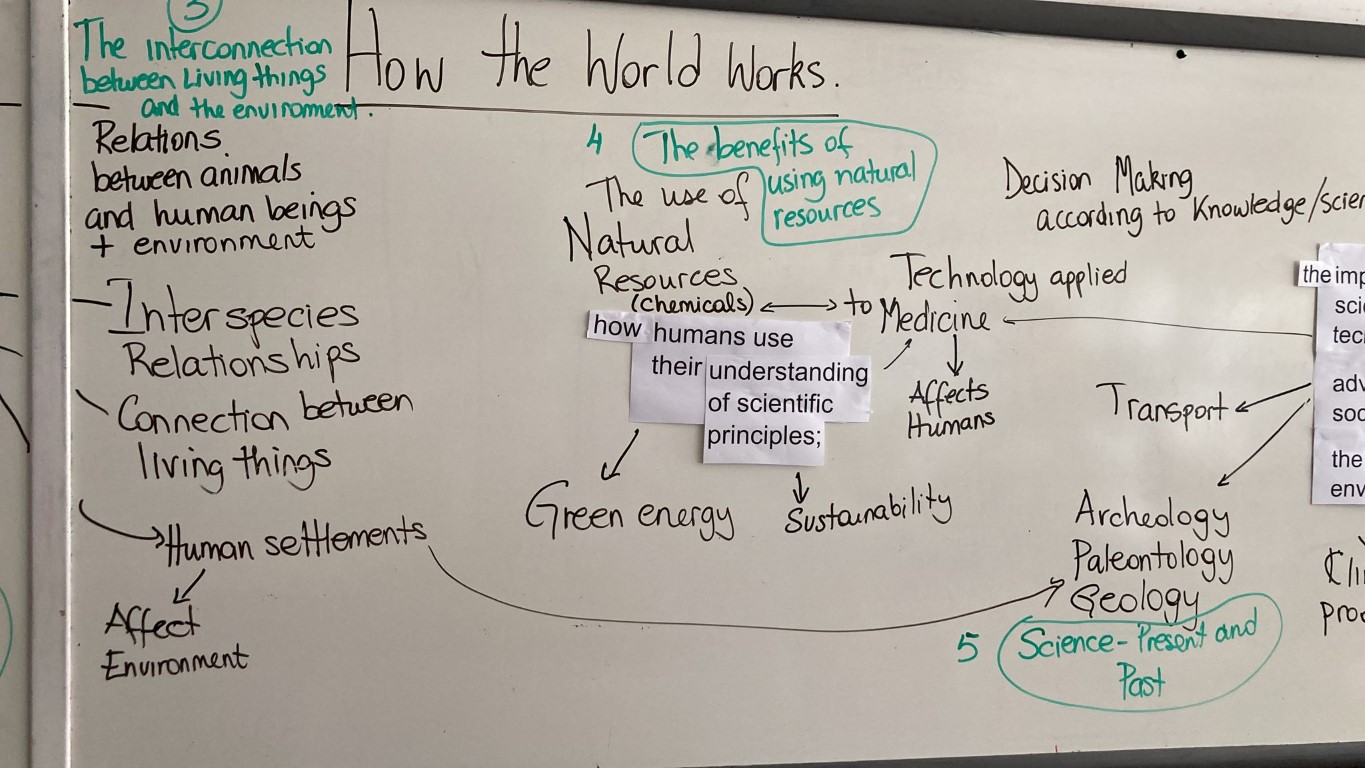 3
The interconnection
between Living things
and the enviroment.
How the World Works.
Relations
between animals
and human beings
+ environment
Interspecies
Relationships
Connection between
living things
Human settlements
Affect
Environment
4
The benefits of
using natural
resources
The use of
Natural
Resources
(Chemicals)
how humans use
their understanding
of scientific
principles;
Green energy
Sustainability
Technology applied
to Medicine
Affects
Humans
Decision Making
according to Knowledge/
Transport
Archeology
Paleontology
Geology
5
Science - Present and
Past
the
the